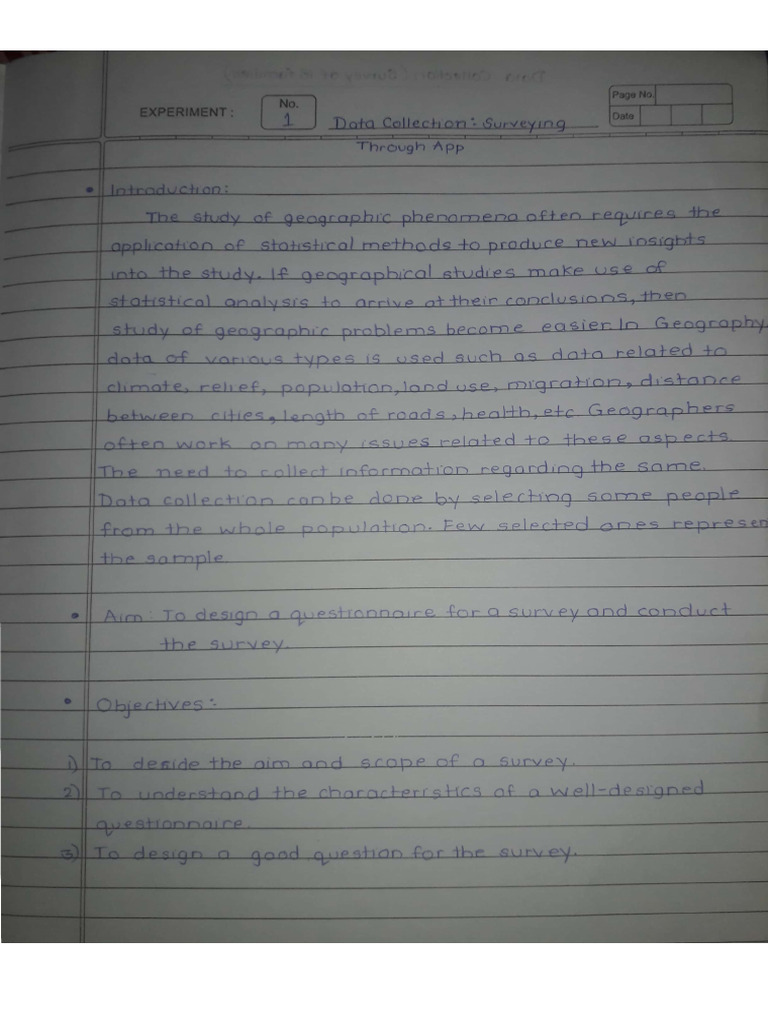 EXPERIMENT :
No.
1
Data Collection: Surveying
Through App
Page No.
Date
• Introduction:
The study of geographic phenomena often requires the
application of statistical methods to produce new insights
into the study. If geographical studies make use of
statistical analysis to arrive at their conclusions, then
study of geographic problems become easier. In Geography
data of various types is used such as data related to
climate, relief, population, land use, migration, distance
between cities, length of roads, health, etc Geographers
often work on many issues related to these aspects.
The need to collect information regarding the same.
Data collection can be done by selecting some people
from the whole population. Few selected ones represen
the sample.
• Aim: To design a questionnaire for a survey and conduct
the survey.
• Objectives:-
1) To deside the aim and scope of a survey.
2) To understand the characterrstics of a well-designed
questionnaire.
3) To design a good question for the survey.